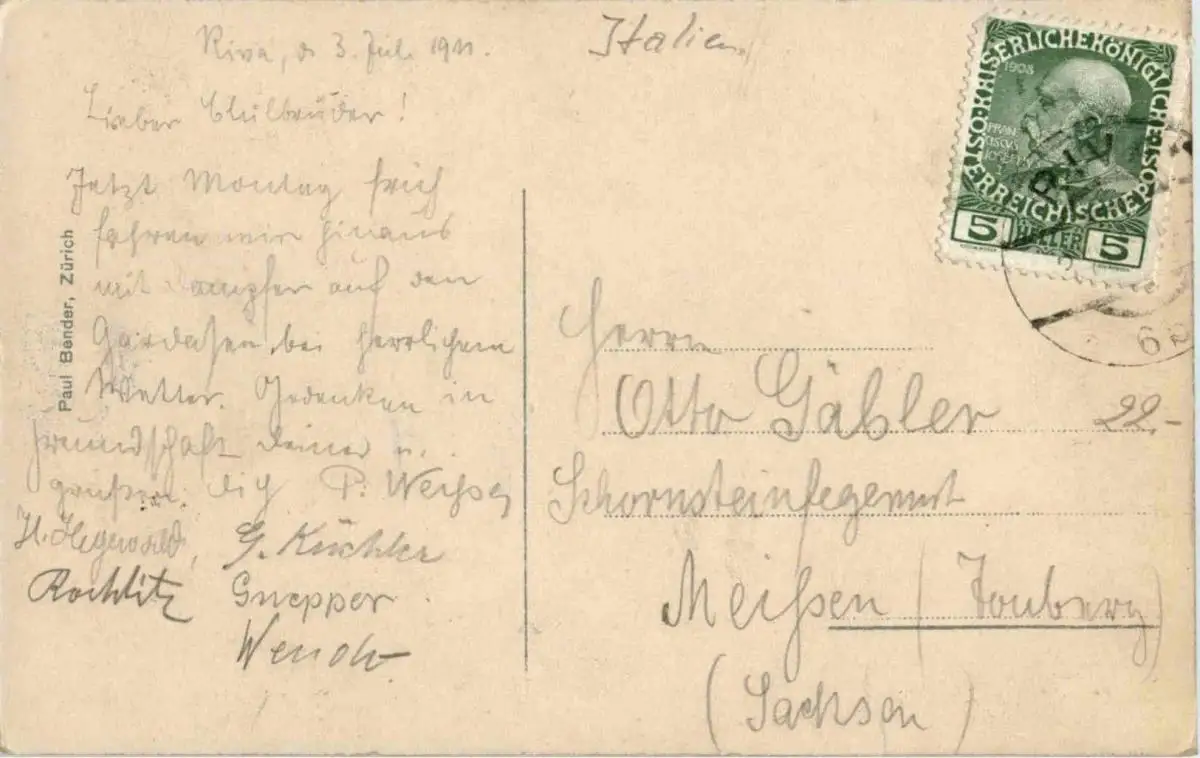 Riva, d 3. Juli 1911.
Italien
Lieber Blutbruder!
Jetzt Montag früh
fahren wir hinaus
mit Dampfer auf den
Gardasee bei herrlichem
Wetter. Gedenken in
Freundschaft deiner u.
grüßen dich P. Weißer
H. Hegewald, G. Küchler
Rochlitz Gnepper
Wendt
Paul Bender, Zürich
KAISERLICHE KÖNIGLICHE
ÖSTERREICHISCHE POST
1908
FRANCISCUS JOSEPH I
5 HELLER 5
Herrn
Otto Gäbler
22.-
Schornsteinfegermst
Meißen (
(Sachsen)